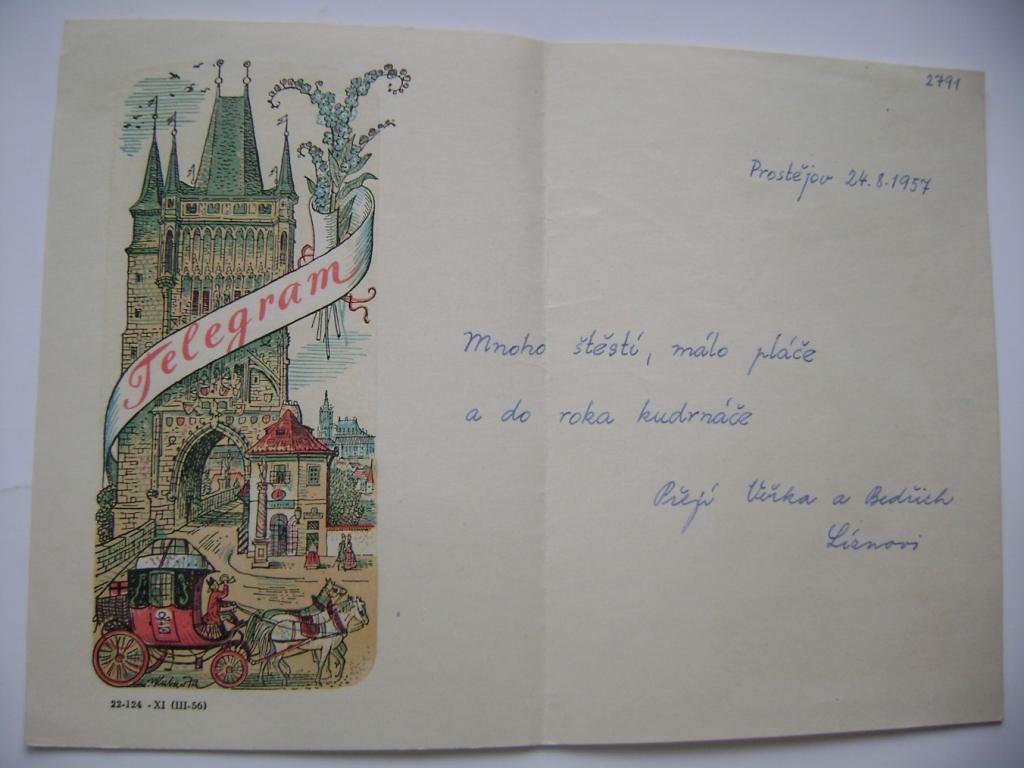 2791
Prostějov 24.8.1957
Telegram
Mnoho štěstí, málo pláče
a do roka kudrnáče
Přejí Věrka a Bedřich
Líznovi
22-124 - XI (III-56)